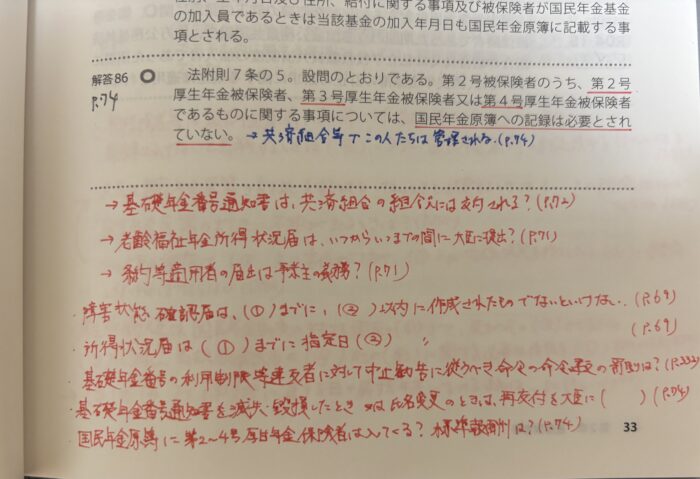 性別、生年月日及び住所、給付に関する事項及び被保険者が国民年金基金
の加入員であるときは当該基金の加入年月日も国民年金原簿に記載する事
項とされる。
解答86 ○ 法附則7条の5。設問のとおりである。第2号被保険者のうち、第2号
P.74 厚生年金被保険者、第3号厚生年金被保険者又は第4号厚生年金被保険者
であるものに関する事項については、国民年金原簿への記録は必要とされ
ていない。→共済組合等でこの人たちは管理される.(P.74)
→基礎年金番号通知書は、共済組合の組合員には交付される?(P.72)
→老齢福祉年金所得状況届は、いつからいつまでの間に大臣に提出?(P.71)
→条約等適用者の届出は事業主の義務?(P.71)
・障害状態確認届は、(①)までに、(②)以内に作成されたものでないといけない.(P.69)
・所得状況届は(①)までに指定日(②) 〃 (P.69)
・基礎年金番号の利用制限等違反者に対して中止勧告に従うべき命令の命令違反の罰則は?(P.332)
・基礎年金番号通知書を滅失・毀損したとき 又は氏名変更のときは、再交付を大臣に( )(P.74)
・国民年金原簿に第2〜4号厚生年金保険者は入ってくる?標準報酬は?(P.74)
33